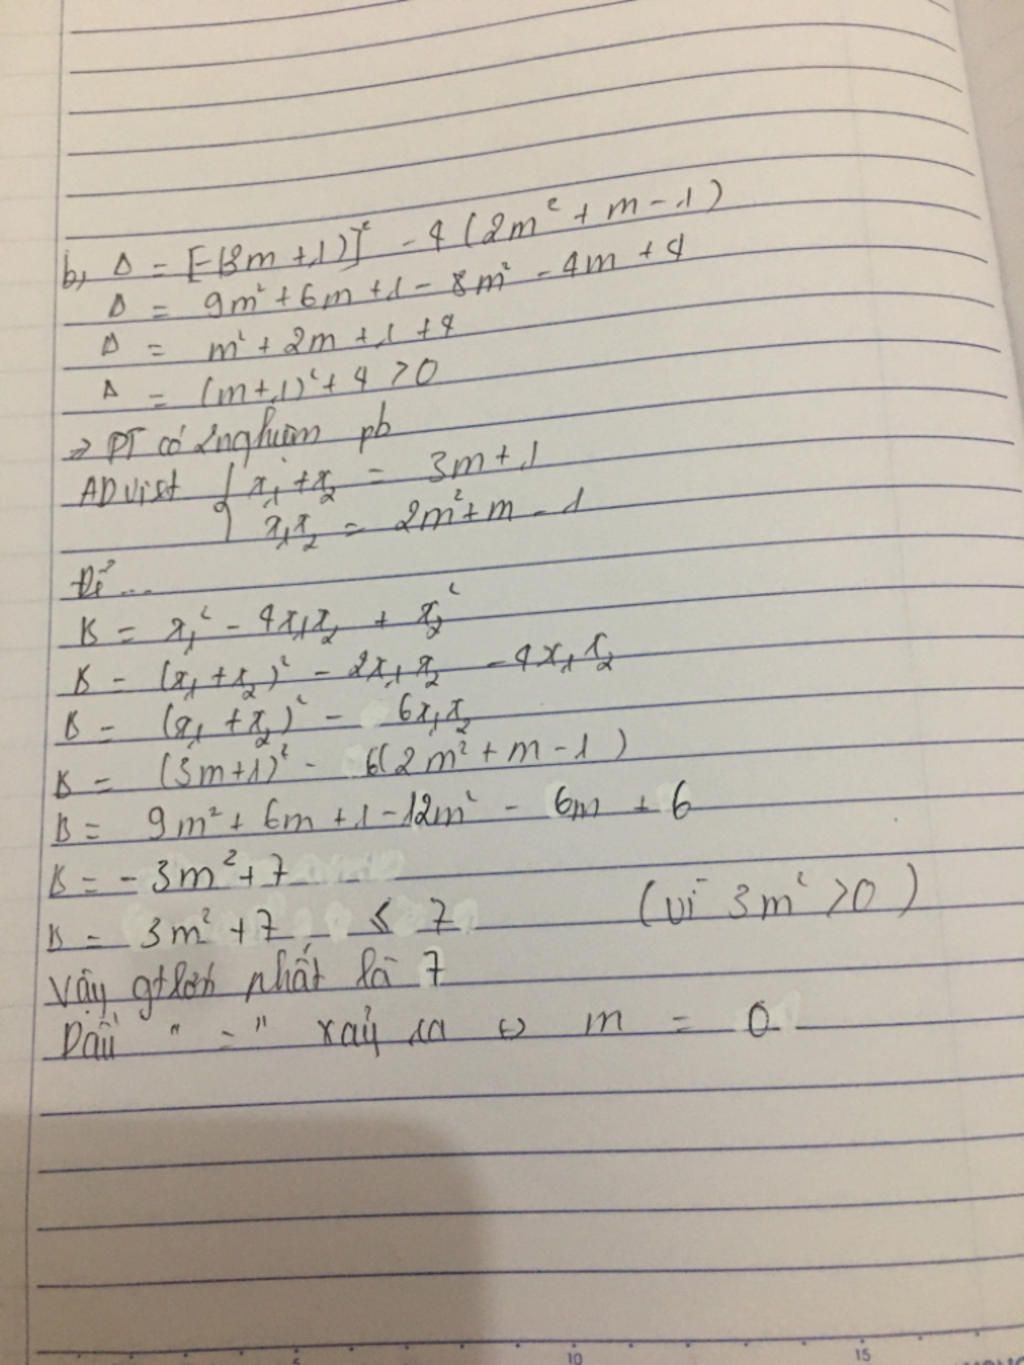 b, Δ = [-(3m+1)]² - 4(2m²+m-1)
Δ = 9m²+6m+1-8m²-4m+4
Δ = m²+2m+1+4
Δ = (m+1)²+4>0
⇒ PT có 2 nghiệm pb
AD viet { x₁+x₂ = 3m+1
x₁x₂ = 2m²+m-1
Để ...
B = x₁² - 4x₁x₂ + x₂²
B = (x₁+x₂)² - 2x₁x₂ - 4x₁x₂
B = (x₁+x₂)² - 6x₁x₂
B = (3m+1)² - 6(2m²+m-1)
B = 9m²+6m+1-12m² - 6m + 6
B = - 3m²+7
B = 3m²+7 ≤ 7 (vì 3m²>0)
Vậy gtlớn nhất là 7
Dấu " = " xảy ra ⇔ m = 0
10
15